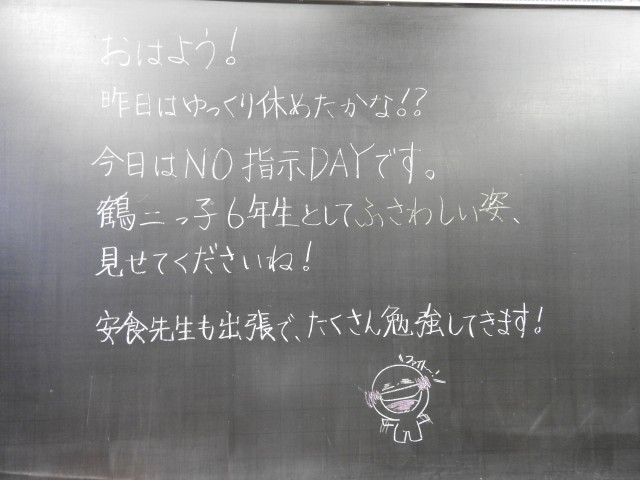 おはよう!
昨日はゆっくり休めたかな!?
今日はNO指示DAYです。
鶴二っ子6年生としてふさわしい姿、
見せてくださいね!
安食先生も出張で、たくさん勉強してきます!
ファイト〜!